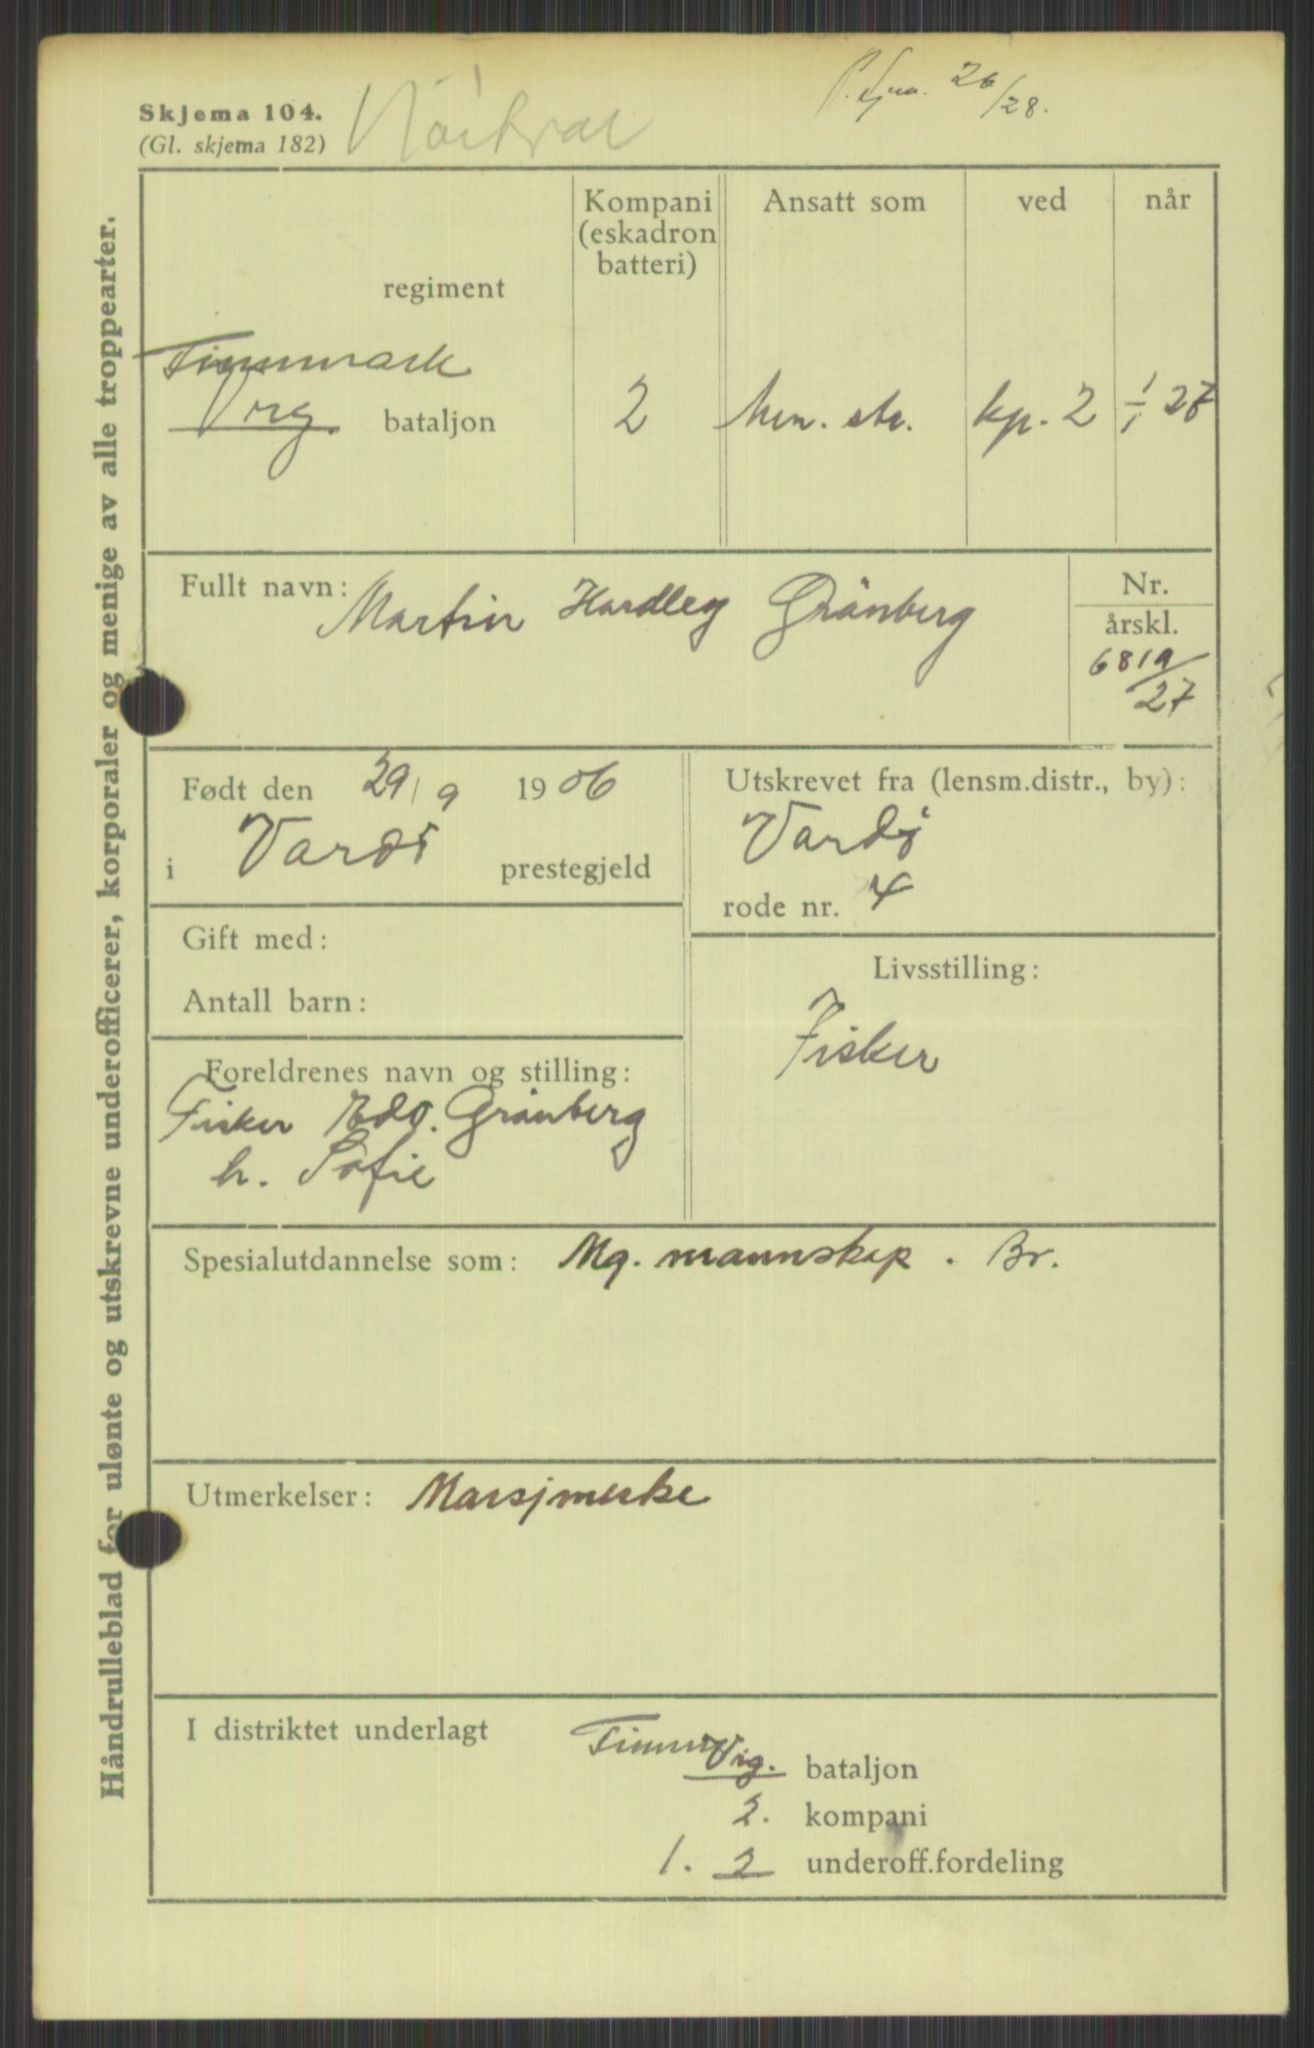 Skjema 104.
(Gl. skjema 182)
26/28.
Håndrulleblad for ulønte og utskrevne underofficerer, korporaler og menige av alle troppearter.
Kompani
(eskadron
batteri)
Ansatt som
ved
når
regiment
Finnmark
bataljon
2
kp. 2
1/1 27
Fullt navn: Martin Hardley Grönberg
Nr.
årskl.
6819/27
Født den 29/9 1906
i Vardö prestegjeld
Utskrevet fra (lensm.distr., by):
Vardö
rode nr. 4
Gift med:
Antall barn:
Livsstilling:
Fisker
Foreldrenes navn og stilling:
Fisker Edv. Grönberg
h. Sofie
Spesialutdannelse som: Mg. mannskap. Br.
Utmerkelser: Marsjmerke
I distriktet underlagt
bataljon
2. kompani
1. 2 underoff.fordeling